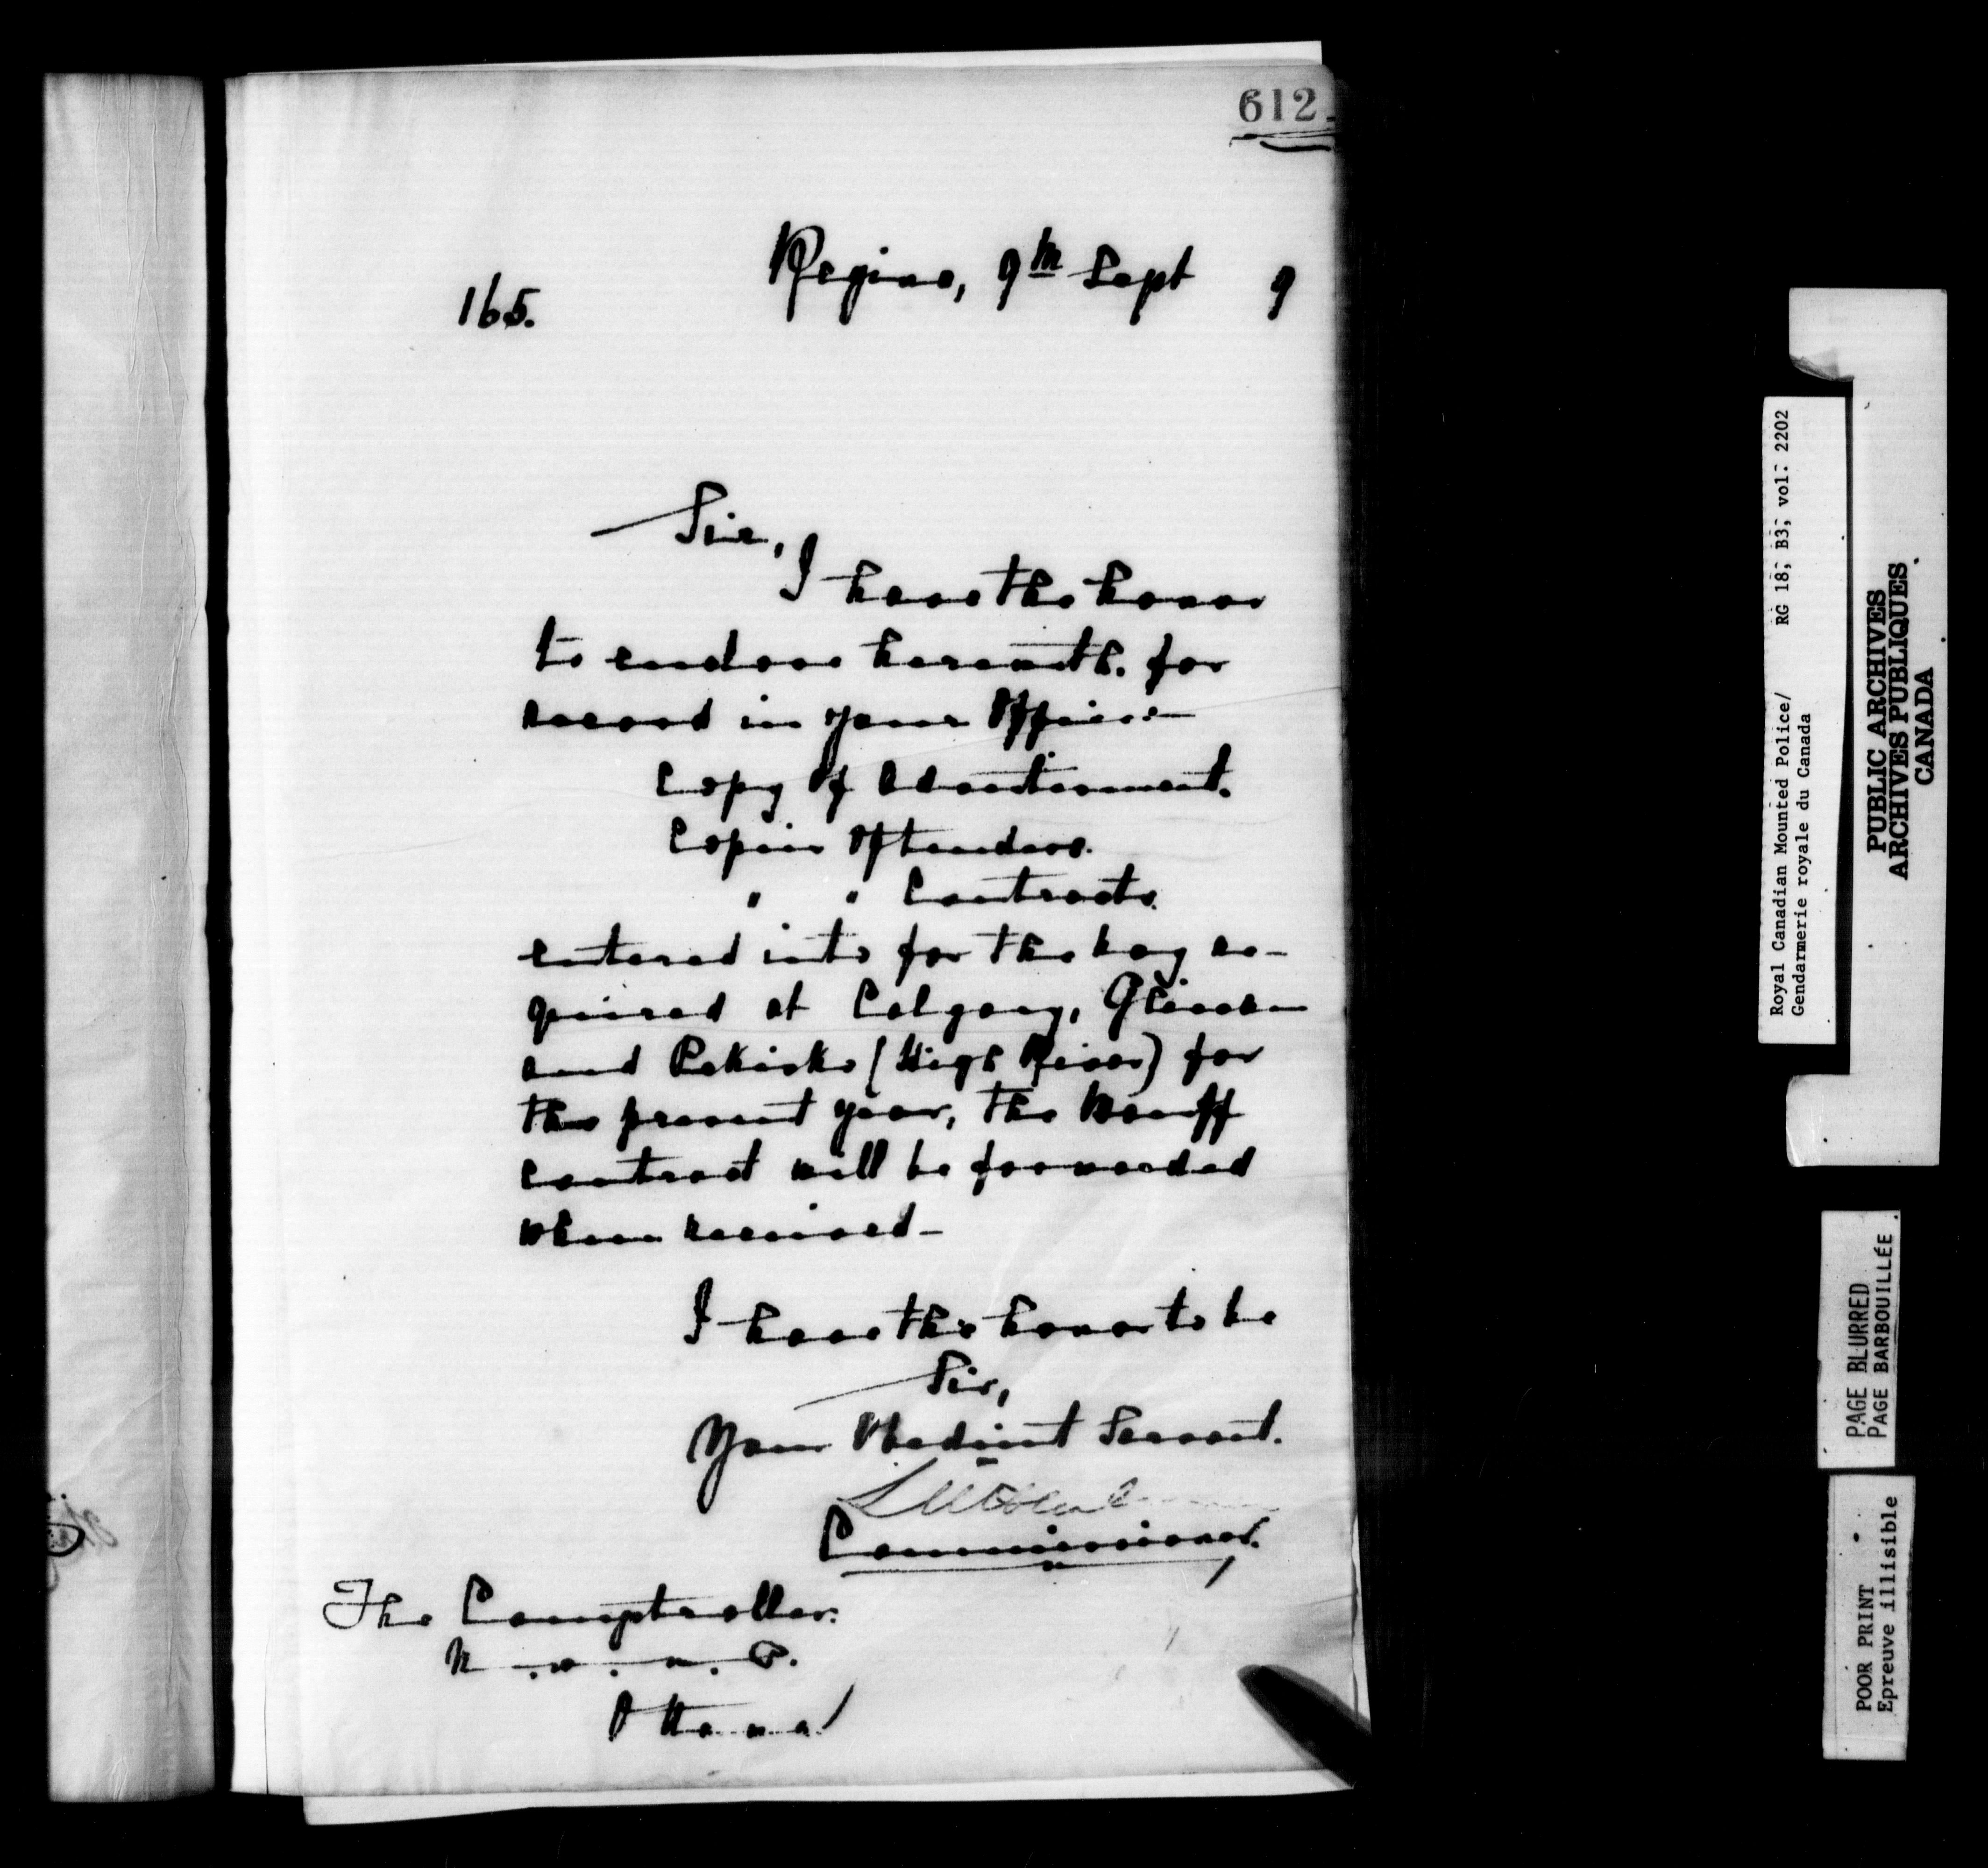 612
Regina, 9th Sept 9
165.
Sir,
I have the honor
to enclose herewith. for
record in your Office:—
Copy of Advertisement.
Copies of tenders.
" " Contracts.
entered into for the hay re-
quired at Calgary, Gleichen
and Pekisko (High River) for
the present year, the Banff
contract will be forwarded
when received —
I have the honor to be
Sir,
Your Obedient Servant.
Commissioner.
The Comptroller.
N. W. M. P.
Ottawa
Royal Canadian Mounted Police/ RG 18; B3; vol: 2202
Gendarmerie royale du Canada
PUBLIC ARCHIVES
ARCHIVES PUBLIQUES
CANADA
PAGE BLURRED
PAGE BARBOUILLÉE
POOR PRINT
Epreuve illisible